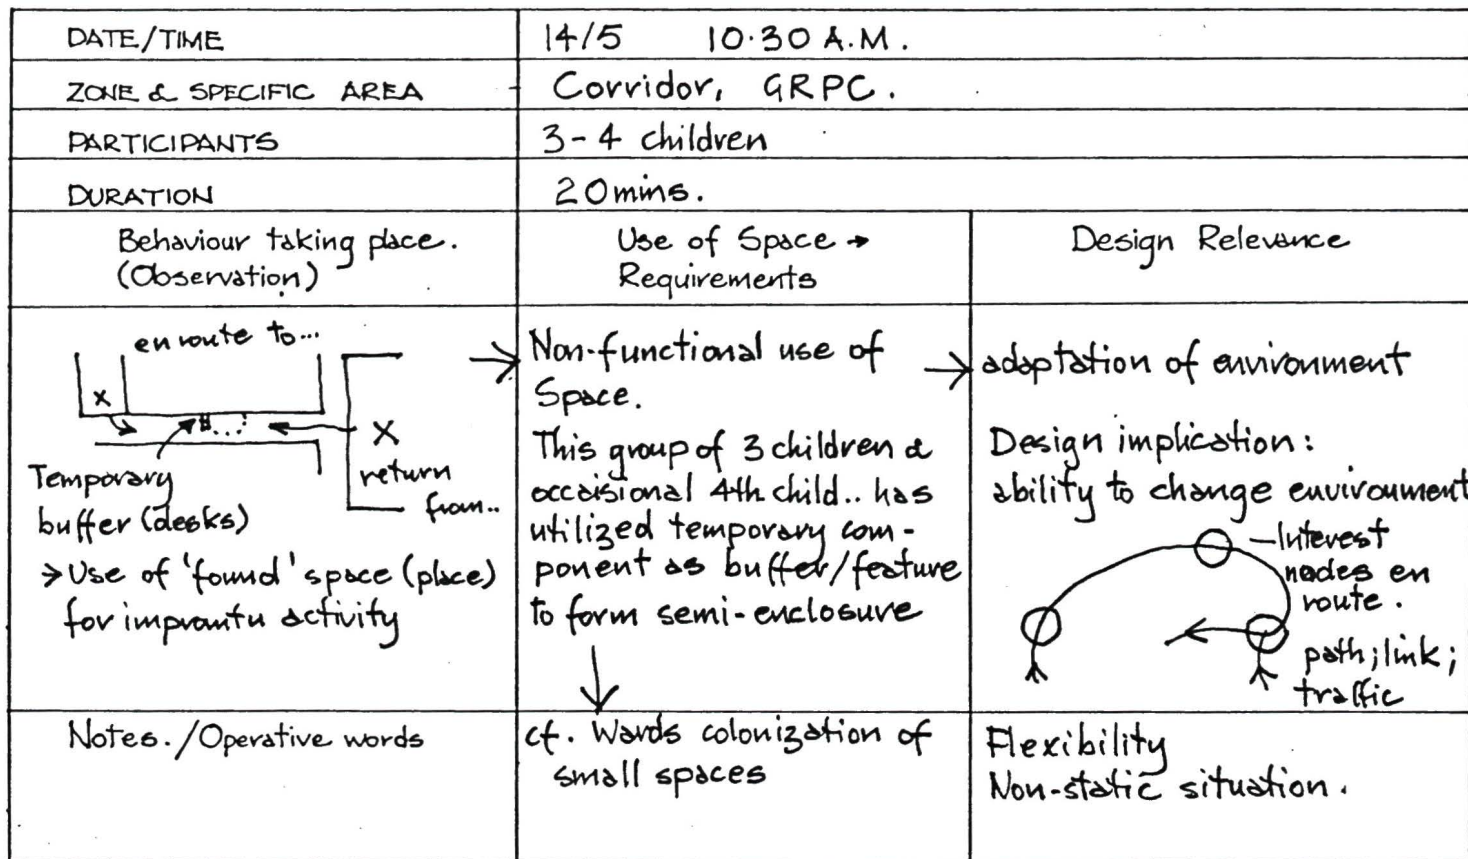 DATE/TIME
14/5 10.30 A.M.
ZONE & SPECIFIC AREA
Corridor, GRPC.
PARTICIPANTS
3-4 children
DURATION
20mins.
Behaviour taking place.
(Observation)
Use of Space →
Requirements
Design Relevance
en route to...
x
X
return
from..
Temporary
buffer (desks)
> Use of 'found' space (place)
for impromtu activity
Non-functional use of
Space.
This group of 3 children &
occaisional 4th child.. has
utilized temporary com-
ponent as buffer/feature
to form semi-enclosure
adaptation of environment
Design implication:
ability to change environment
Interest
nodes en
route.
path; link;
traffic
Notes./Operative words
cf. Wards colonization of
small spaces
Flexibility
Non-static situation.